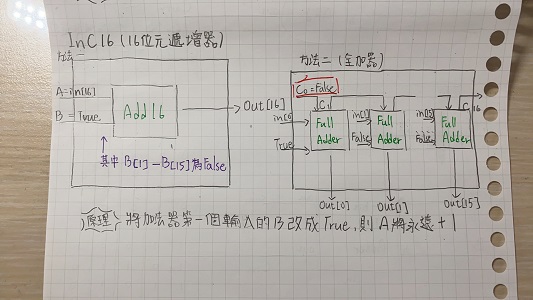 InC16 (16位元遞增器)
方法一
A=in[16]
B=True
Add16
Out[16]
其中B[1]-B[15]為False
方法二(全加器)
C₀=False
C₁
C 16
in[0]
True
Full
Adder
in[1]
False
Full
Adder
in[15]
False
Full
Adder
Out[0]
Out[1]
Out[15]
原理:將加法器第一個輸入的B改成True,則A將永遠+1